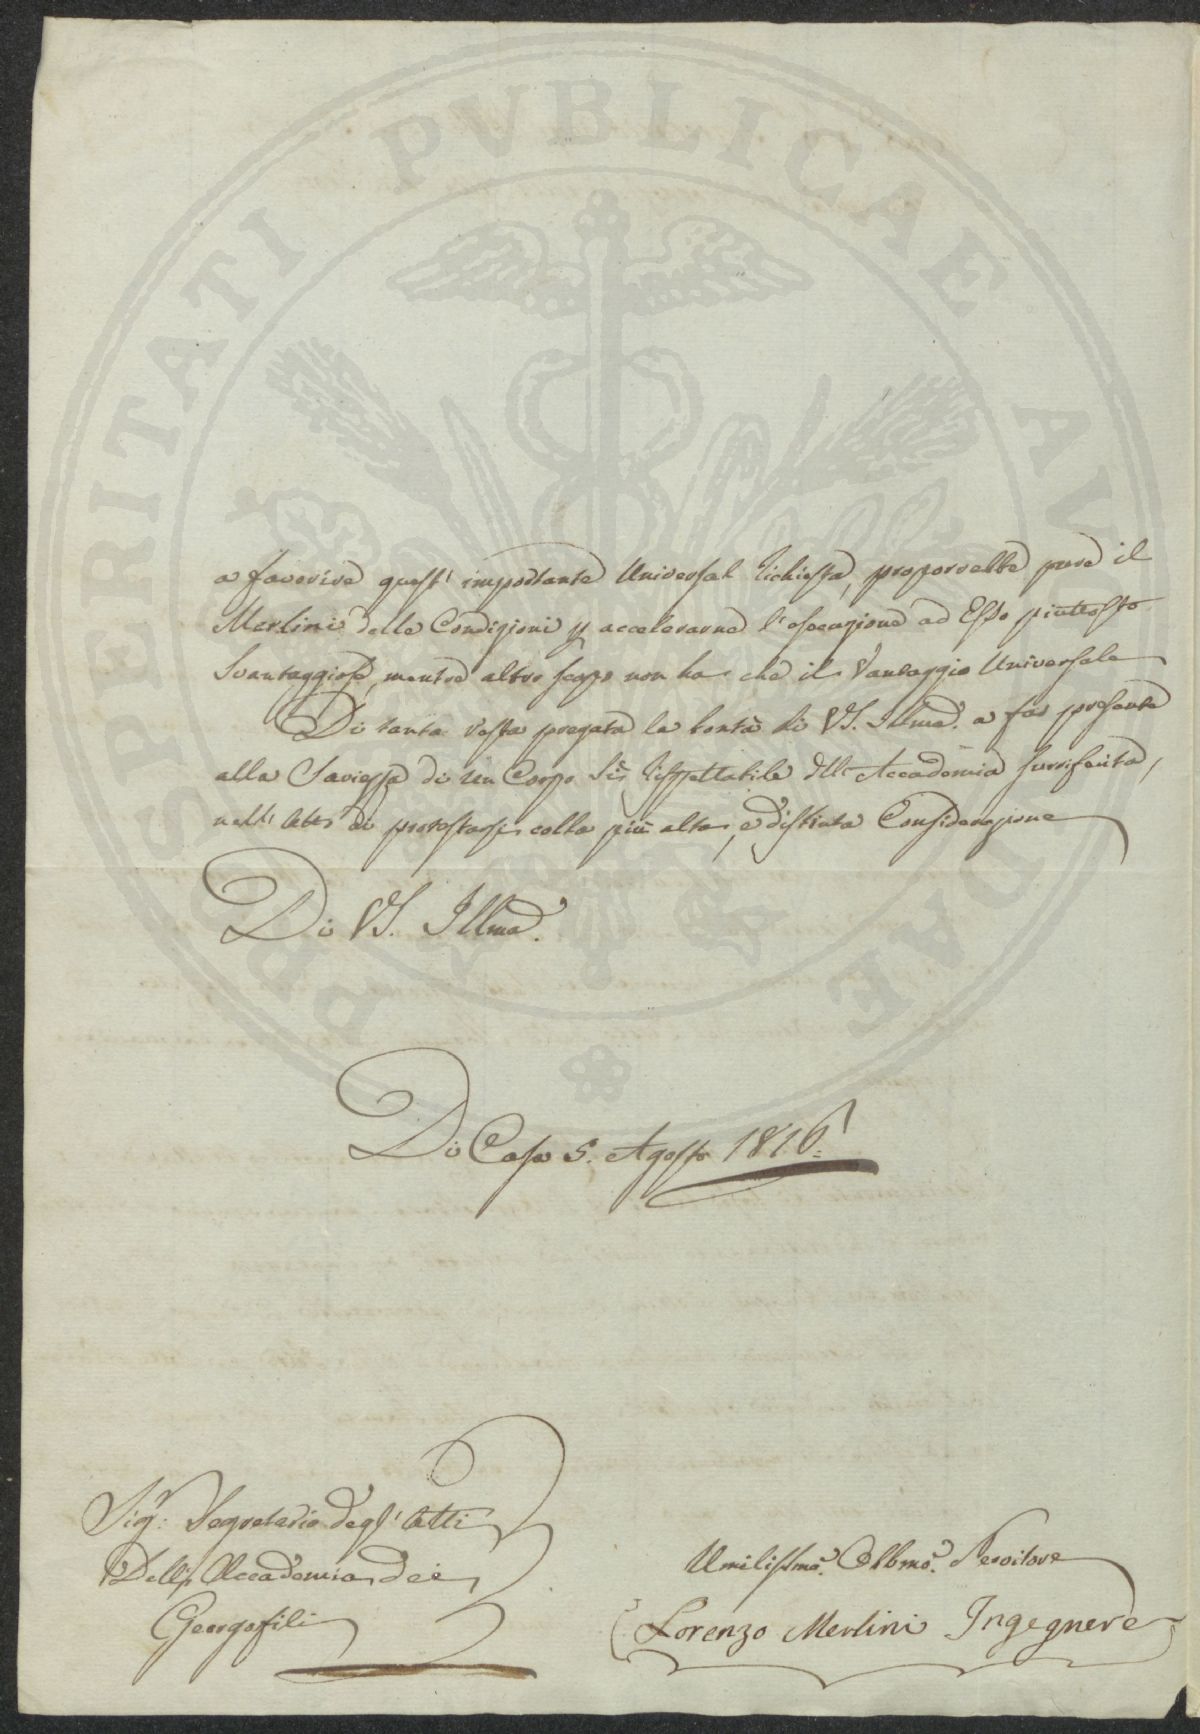 PROSPERITATI PVBLICAE AVGENDAE
a favorire quest' importante Universal richiesta, proporrebbe pure il
Merlini delle Condizioni p accelerarne l'esecuzione ad Esso piuttosto
Svantaggiose, mentre altro scopo non ha che il Vantaggio Universale
Di tanto resta pregata la bontà di VS. Illma. a far presente
alla Saviezza di un Corpo sì rispettabile dell' Accademia surriferita,
nell' atto di protestarsi colla più alta, e distinta Considerazione
Di VS. Illma.
Di Casa 5. Agosto 1816.
Sigr: Segretario degl' Atti
Dell' Accademia dei
Georgofili
Umilissmo. Obbmo. Servitore
Lorenzo Merlini Ingegnere